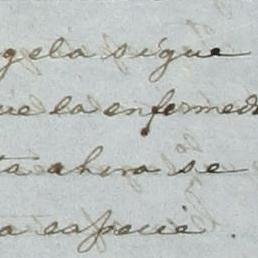 gela sigue
ue la enfermed
ta ahora se
a especie.